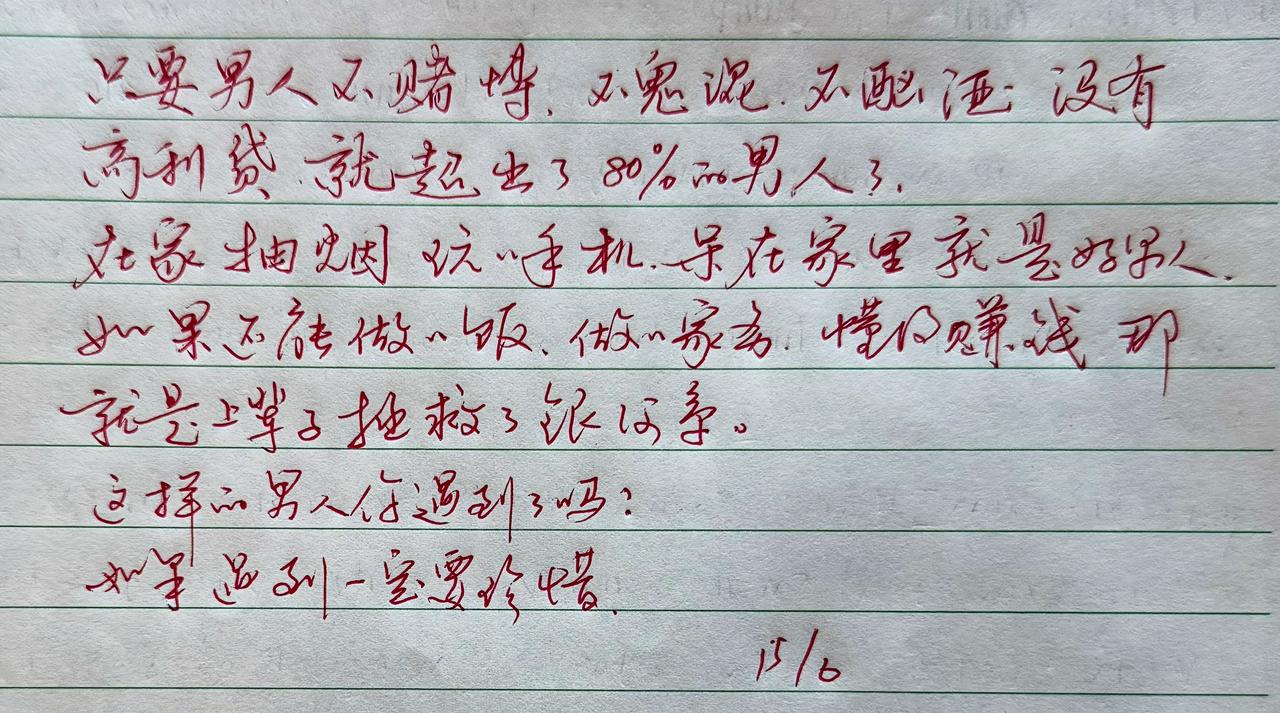 只要男人不赌博、不鬼混、不酗酒、没有
高利贷、就超出了80%的男人了.
在家抽烟玩小手机.呆在家里就是好男人.
如果还能做小饭、做小家务、懂得赚钱那
就是上辈子拯救了银河系。
这样的男人你遇到了吗?
如果遇到一定要珍惜.
15/6